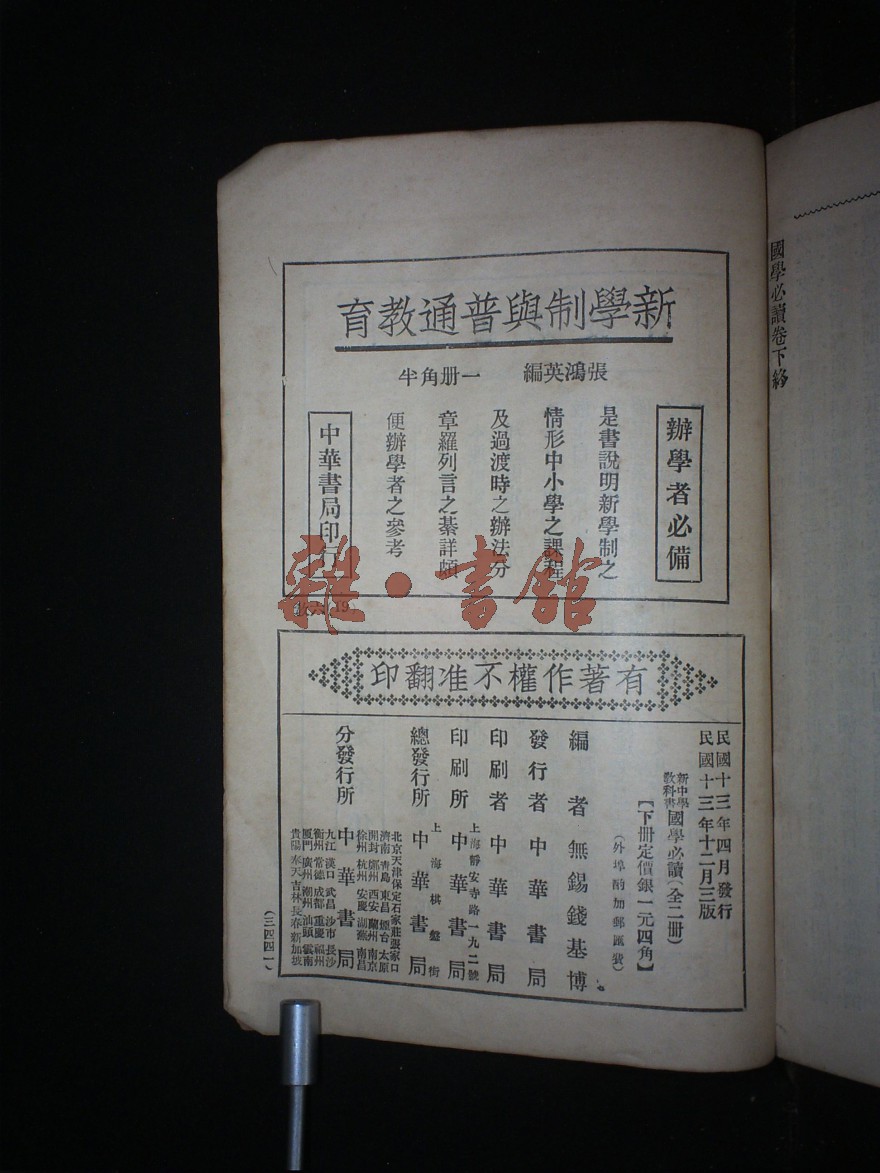 國學必讀卷下終
新學制與普通教育
張鴻英編　一册角半
辦學者必備
是書說明新學制之
情形中小學之課程
及過渡時之辦法分
章羅列言之綦詳頗
便辦學者之參考
中華書局印行
雜·書館
有著作權不准翻印
民國十三年四月發行
民國十三年十二月三版
新中學教科書 國學必讀（全二册）
【下册定價銀一元四角】
（外埠酌加郵匯費）
編者　無錫錢基博
發行者　中華書局
印刷者　中華書局
印刷所　上海靜安寺路一九二號　中華書局
總發行所　上海棋盤街　中華書局
分發行所　中華書局
北京 天津 保定 石家莊 張家口
濟南 青島 東昌 煙台 太原
開封 鄭州 西安 蘭州 南京
徐州 杭州 安慶 蕪湖 南昌
九江 漢口 武昌 沙市 長沙
衡州 常德 成都 重慶 福州
厦門 廣州 潮州 汕頭 雲南
貴陽 奉天 吉林 長春 新加坡
（三四四一）